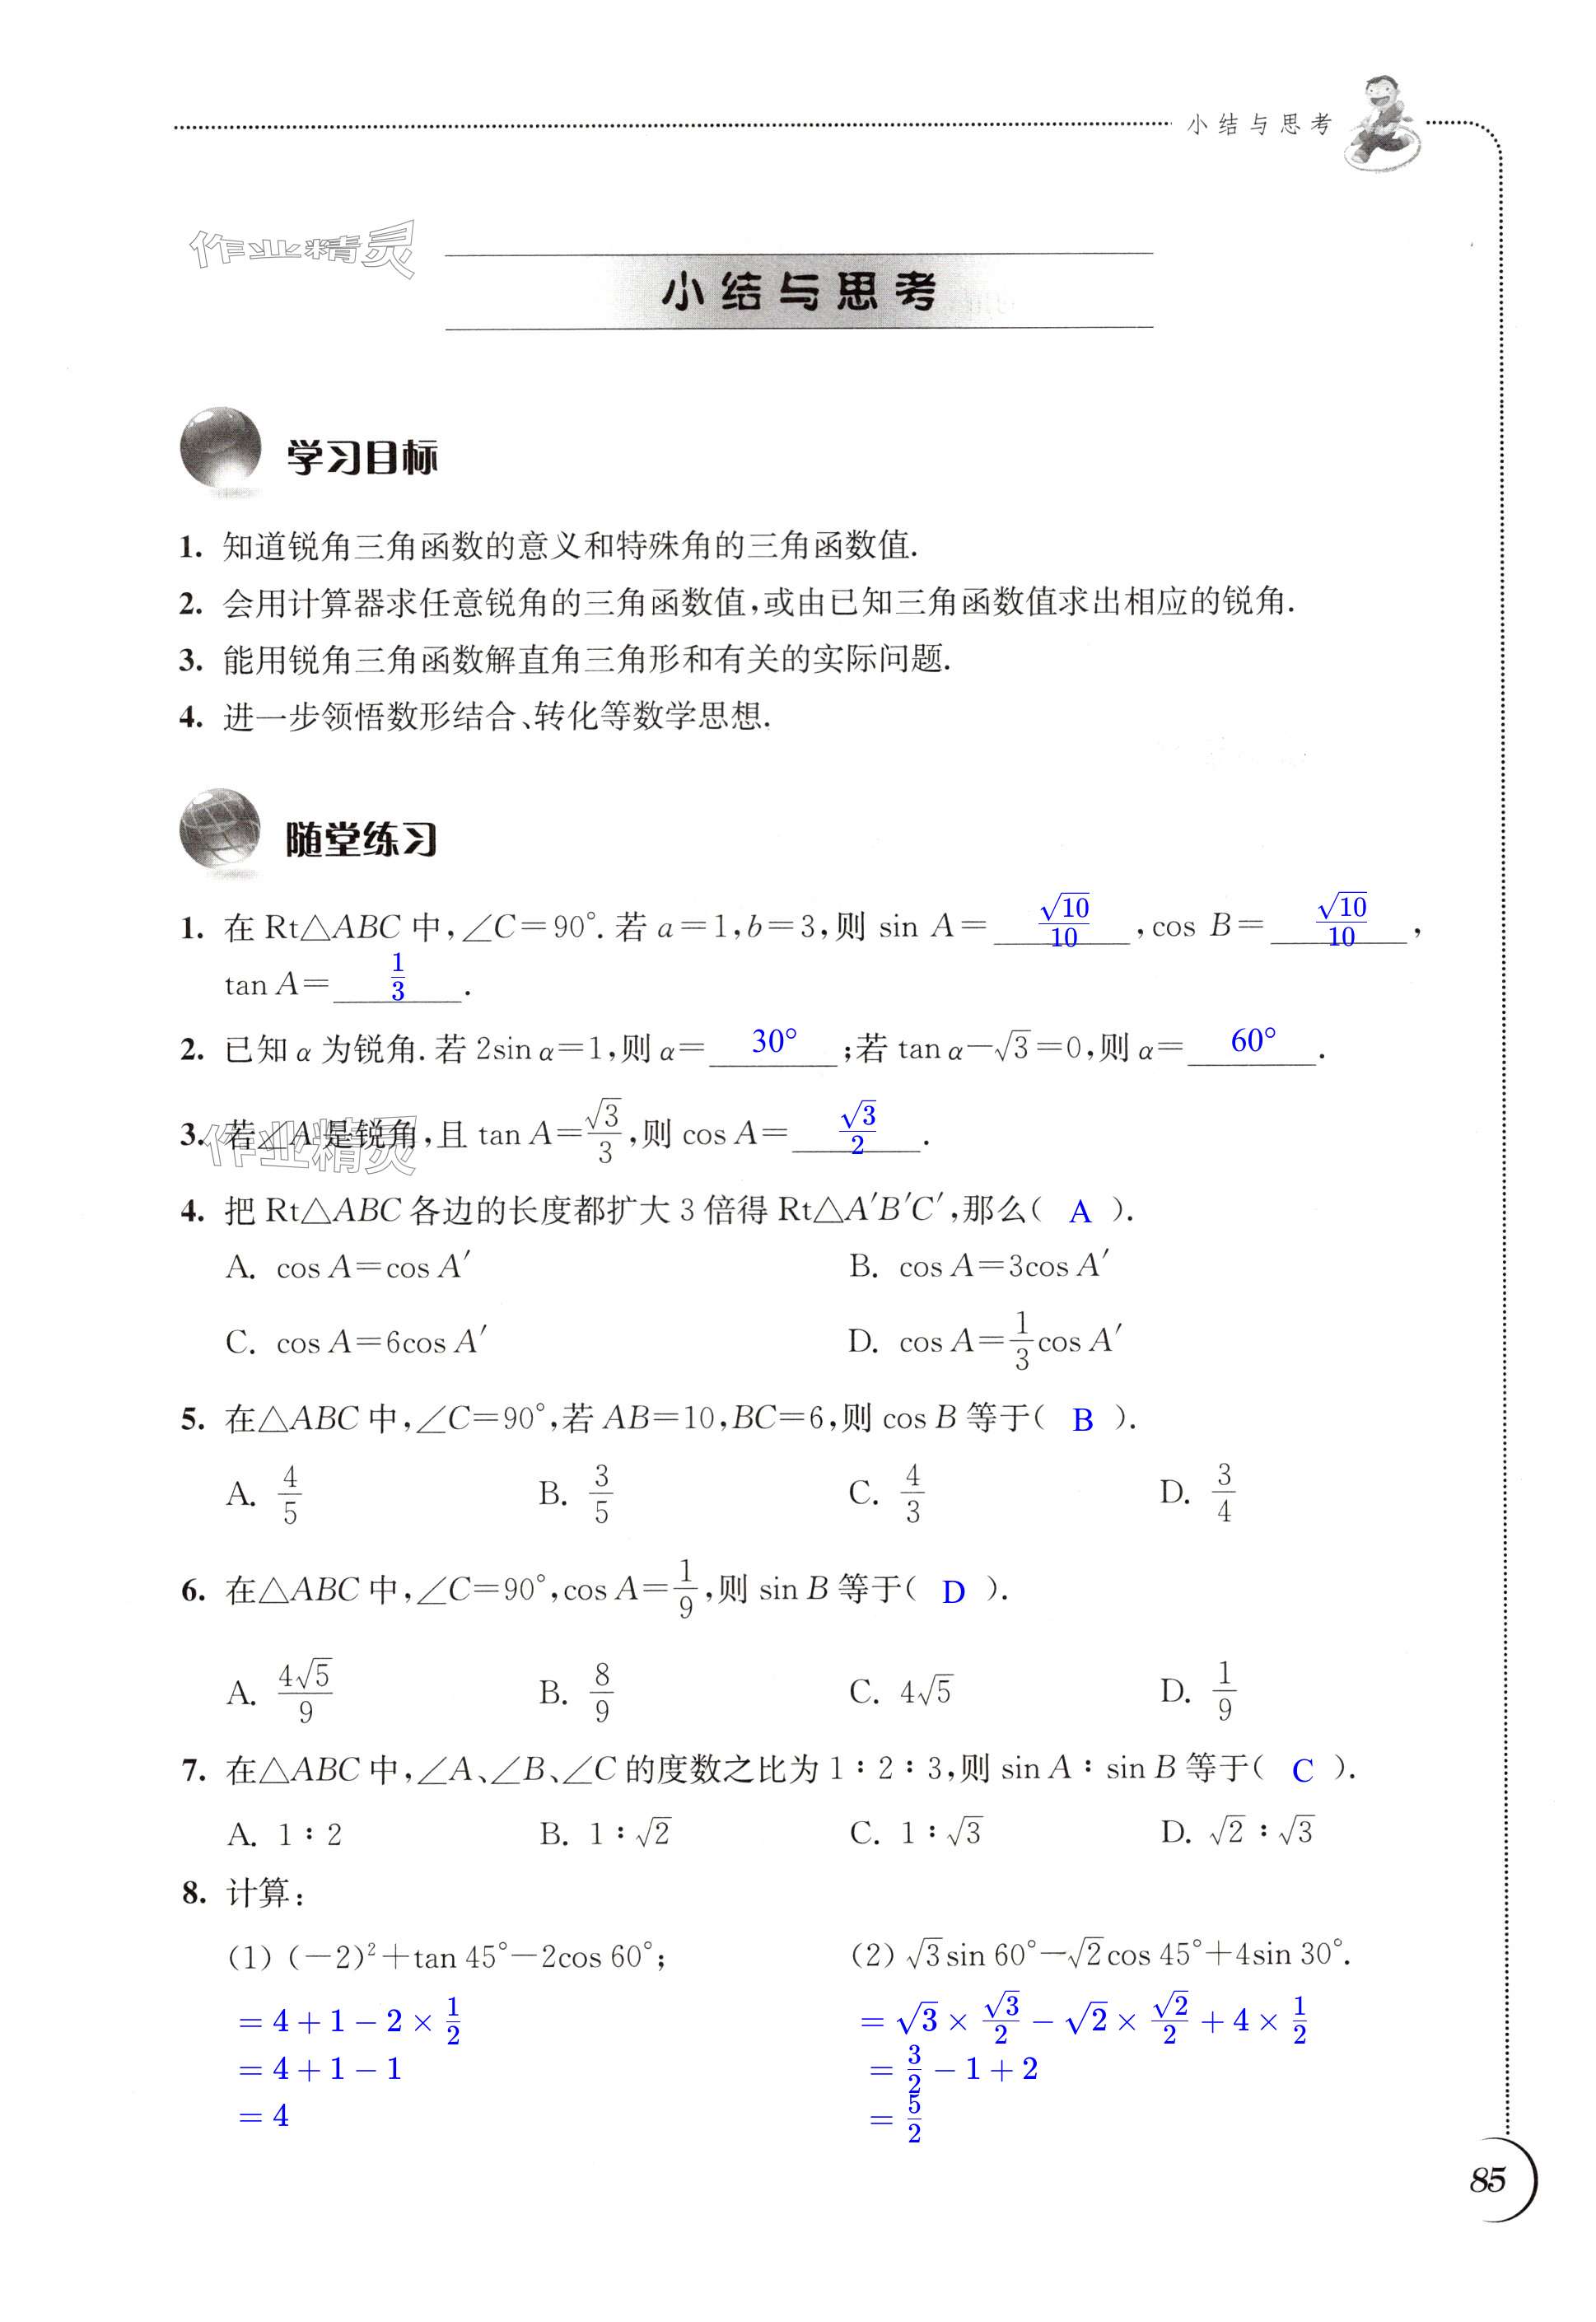 小结与思考
作业精灵
小结与思考
学习目标
1. 知道锐角三角函数的意义和特殊角的三角函数值.
2. 会用计算器求任意锐角的三角函数值,或由已知三角函数值求出相应的锐角.
3. 能用锐角三角函数解直角三角形和有关的实际问题.
4. 进一步领悟数形结合、转化等数学思想.
随堂练习
1. 在 Rt△ABC 中,∠C=90°. 若 a=1,b=3,则 sin A= √10/10 ,cos B= √10/10 ,
tan A= 1/3 .
2. 已知 α 为锐角. 若 2sin α=1,则 α= 30° ;若 tan α-√3=0,则 α= 60° .
3. 若∠A 是锐角,且 tan A=√3/3,则 cos A= √3/2 .
作业精灵
4. 把 Rt△ABC 各边的长度都扩大 3 倍得 Rt△A′B′C′,那么( A ).
A. cos A=cos A′ B. cos A=3cos A′
C. cos A=6cos A′ D. cos A=1/3cos A′
5. 在△ABC 中,∠C=90°,若 AB=10,BC=6,则 cos B 等于( B ).
A. 4/5 B. 3/5 C. 4/3 D. 3/4
6. 在△ABC 中,∠C=90°,cos A=1/9,则 sin B 等于( D ).
A. 4√5/9 B. 8/9 C. 4√5 D. 1/9
7. 在△ABC 中,∠A、∠B、∠C 的度数之比为 1∶2∶3,则 sin A∶sin B 等于( C ).
A. 1∶2 B. 1∶√2 C. 1∶√3 D. √2∶√3
8. 计算:
(1) (-2)²+tan 45°-2cos 60°; (2) √3sin 60°-√2cos 45°+4sin 30°.
=4+1-2×1/2 =√3×√3/2-√2×√2/2+4×1/2
=4+1-1 =3/2-1+2
=4 =5/2
85